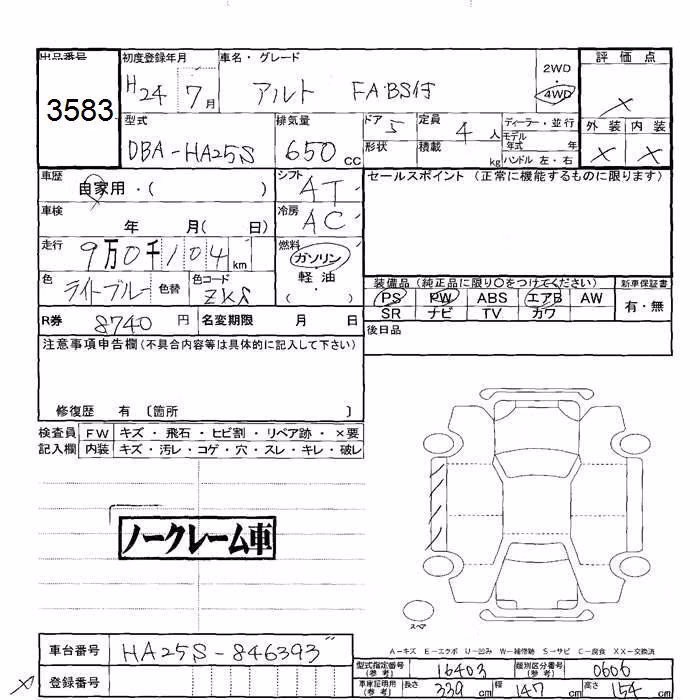 出品番号 初度登録年月 車名・グレード 2WD・4WD 評価点
3583 H24 7月 アルト FA・BS付 ×
型式 排気量 ドア 5 定員 4人 ディーラー・並行 外装 内装
DBA-HA25S 650cc 形状 積載 kg モデル年式 年 × ×
ハンドル 左・右
車歴 自家用・( ) シフト AT セールスポイント (正常に機能するものに限ります)
車検 年 月( 日) 冷房 AC
走行 9万0千104km 燃料 ガソリン・軽油・( )
色 ライトブルー 色替 色コード 装備品 (純正品に限り○をつけてください) 新車保証書
PS PW ABS エアB AW 有・無
SR ナビ TV カワ
R券 8740円 名変期限 月 日 後日品
注意事項申告欄(不具合内容等は具体的に記入して下さい)
修復歴 有 〔箇所 〕
検査員 FW キズ・飛石・ヒビ割・リペア跡・×要
記入欄 内装 キズ・汚レ・コゲ・穴・スレ・キレ・破レ
ノークレーム車
スペア
A-キズ E-エクボ U-凹み W-補修跡 S-サビ C-腐食 XX-交換済
車台番号 HA25S-846393
登録番号
型式指定番号(参考) 16403 類別区分番号(参考) 0606
車庫証明用(参考) 長さ 339cm 幅 147cm 高さ 154cm